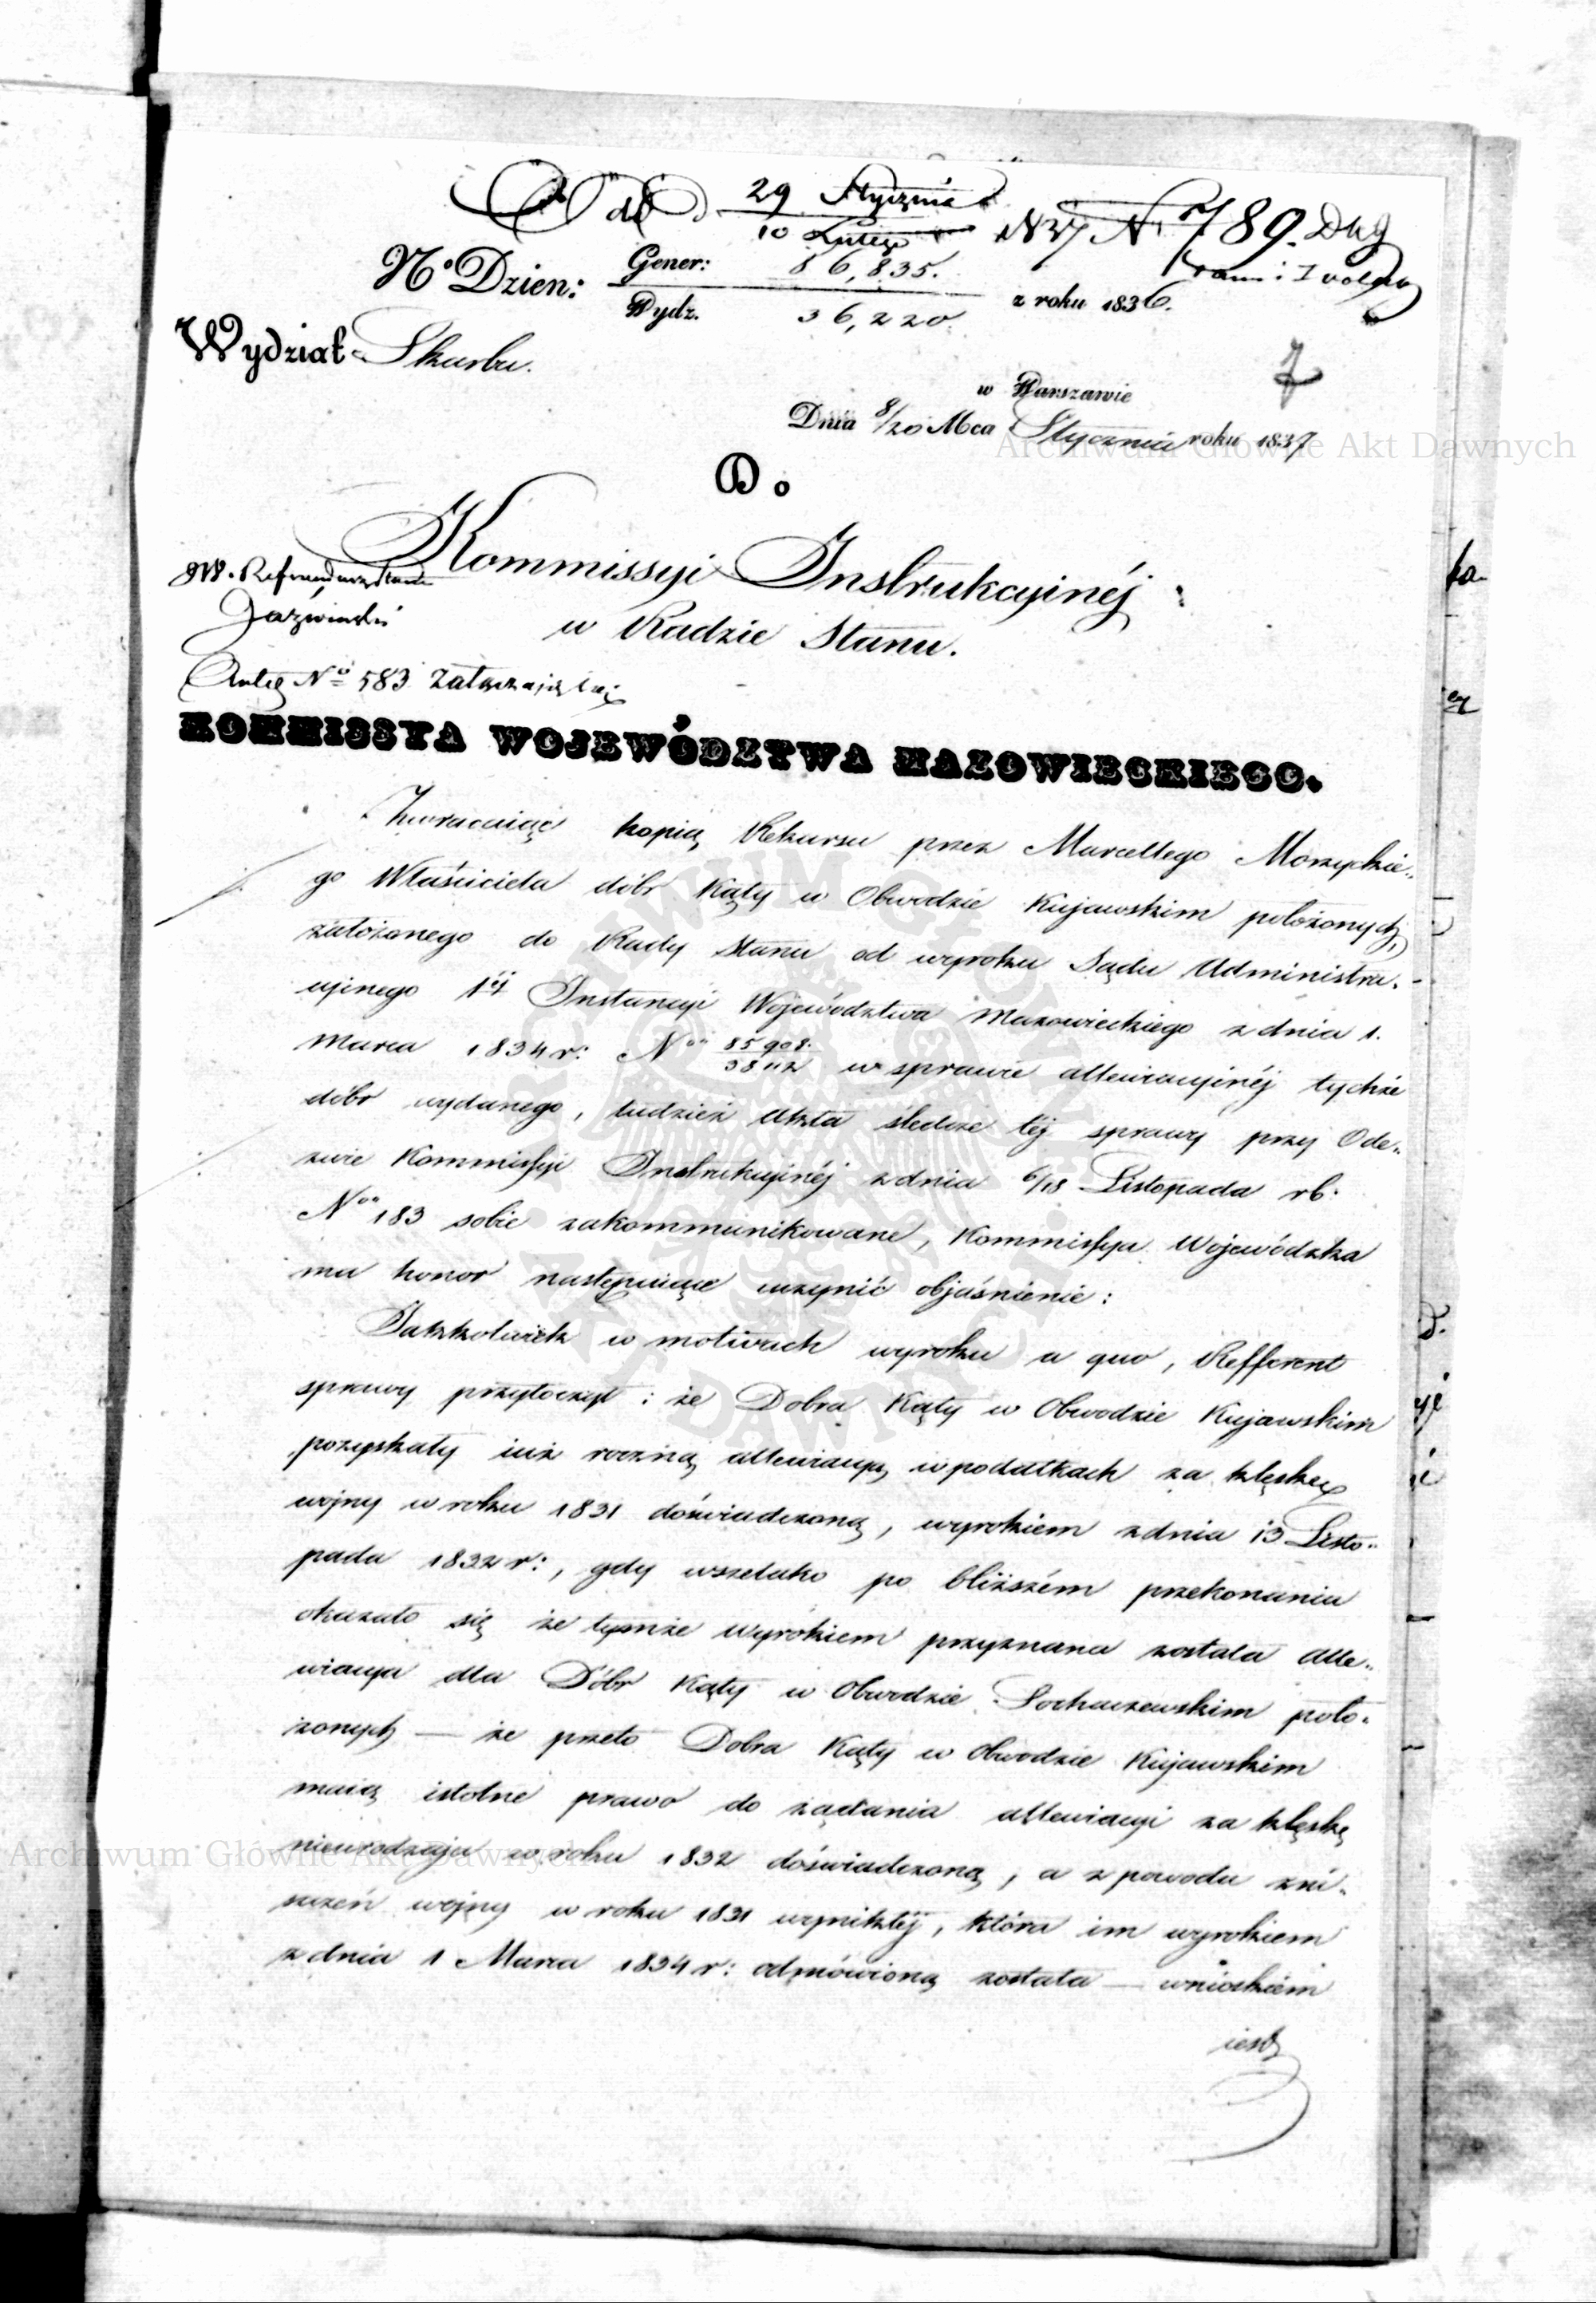 29 Stycznia
10 Lutego
N 789.
No Dzien: Gener: 86,835.
Wydz. 36,220.
z roku 1836.
Wydział Skarbu.
7
w Warszawie
Dnia 8/20 Mca Stycznia roku 1837
Do
Kommissyi Instrukcyinéj
w Radzie Stanu.
JW. Referendarz Stanu
Jaźwiński
No 583
KOMMISSYA WOJEWÓDZTWA MAZOWIECKIEGO.
Zwracaiąc kopią Rekursu przez Marcellego Morzyckie„
go Właściciela dóbr Kąty w Obwodzie Kujawskim położonych,
założonego do Rady Stanu od wyroku Sądu Administra„
cyjnego 1éj Instancyi Województwa Mazowieckiego z dnia 1.
Marca 1834 r: No 85908./38112 w sprawie allewiacyinéj tychże
dóbr wydanego, tudzież Akta śledcze téj sprawy przy Ode„
zwie Kommissyi Instrukcyinéj z dnia 6/18 Listopada rb:
No 183 sobie zakommunikowane, Kommissya Wojewódzka
ma honor następuiące uczynić objaśnienie:
Jakkolwiek w motivach wyroku a quo, Refferent
sprawy przytoczył: że Dobra Kąty w Obwodzie Kujawskim
pozyskały iuż roczną allewiacyą w podatkach za klęskę
wojny w roku 1831 doświadczoną, wyrokiem z dnia 13 Listo„
pada 1832 r:, gdy wszelako po bliższém przekonaniu
okazało się że tymże wyrokiem przyznana została alle„
wiacya dla Dóbr Kąty w Obwodzie Sochaczewskim poło„
żonych — że przeto Dobra Kąty w Obwodzie Kujawskim
maią istotne prawo do żądania allewiacyi za klęskę
nieurodzaju w roku 1832 doświadczoną, a z powodu zni„
szczeń wojny w roku 1831 wynikłéj, która im wyrokiem
z dnia 1 Marca 1834 r: odmówioną została — wnioskiem
iest
Archiwum Główne Akt Dawnych
Archiwum Główne Akt Dawnych
ARCHIWUM GŁÓWNE AKT DAWNYCH